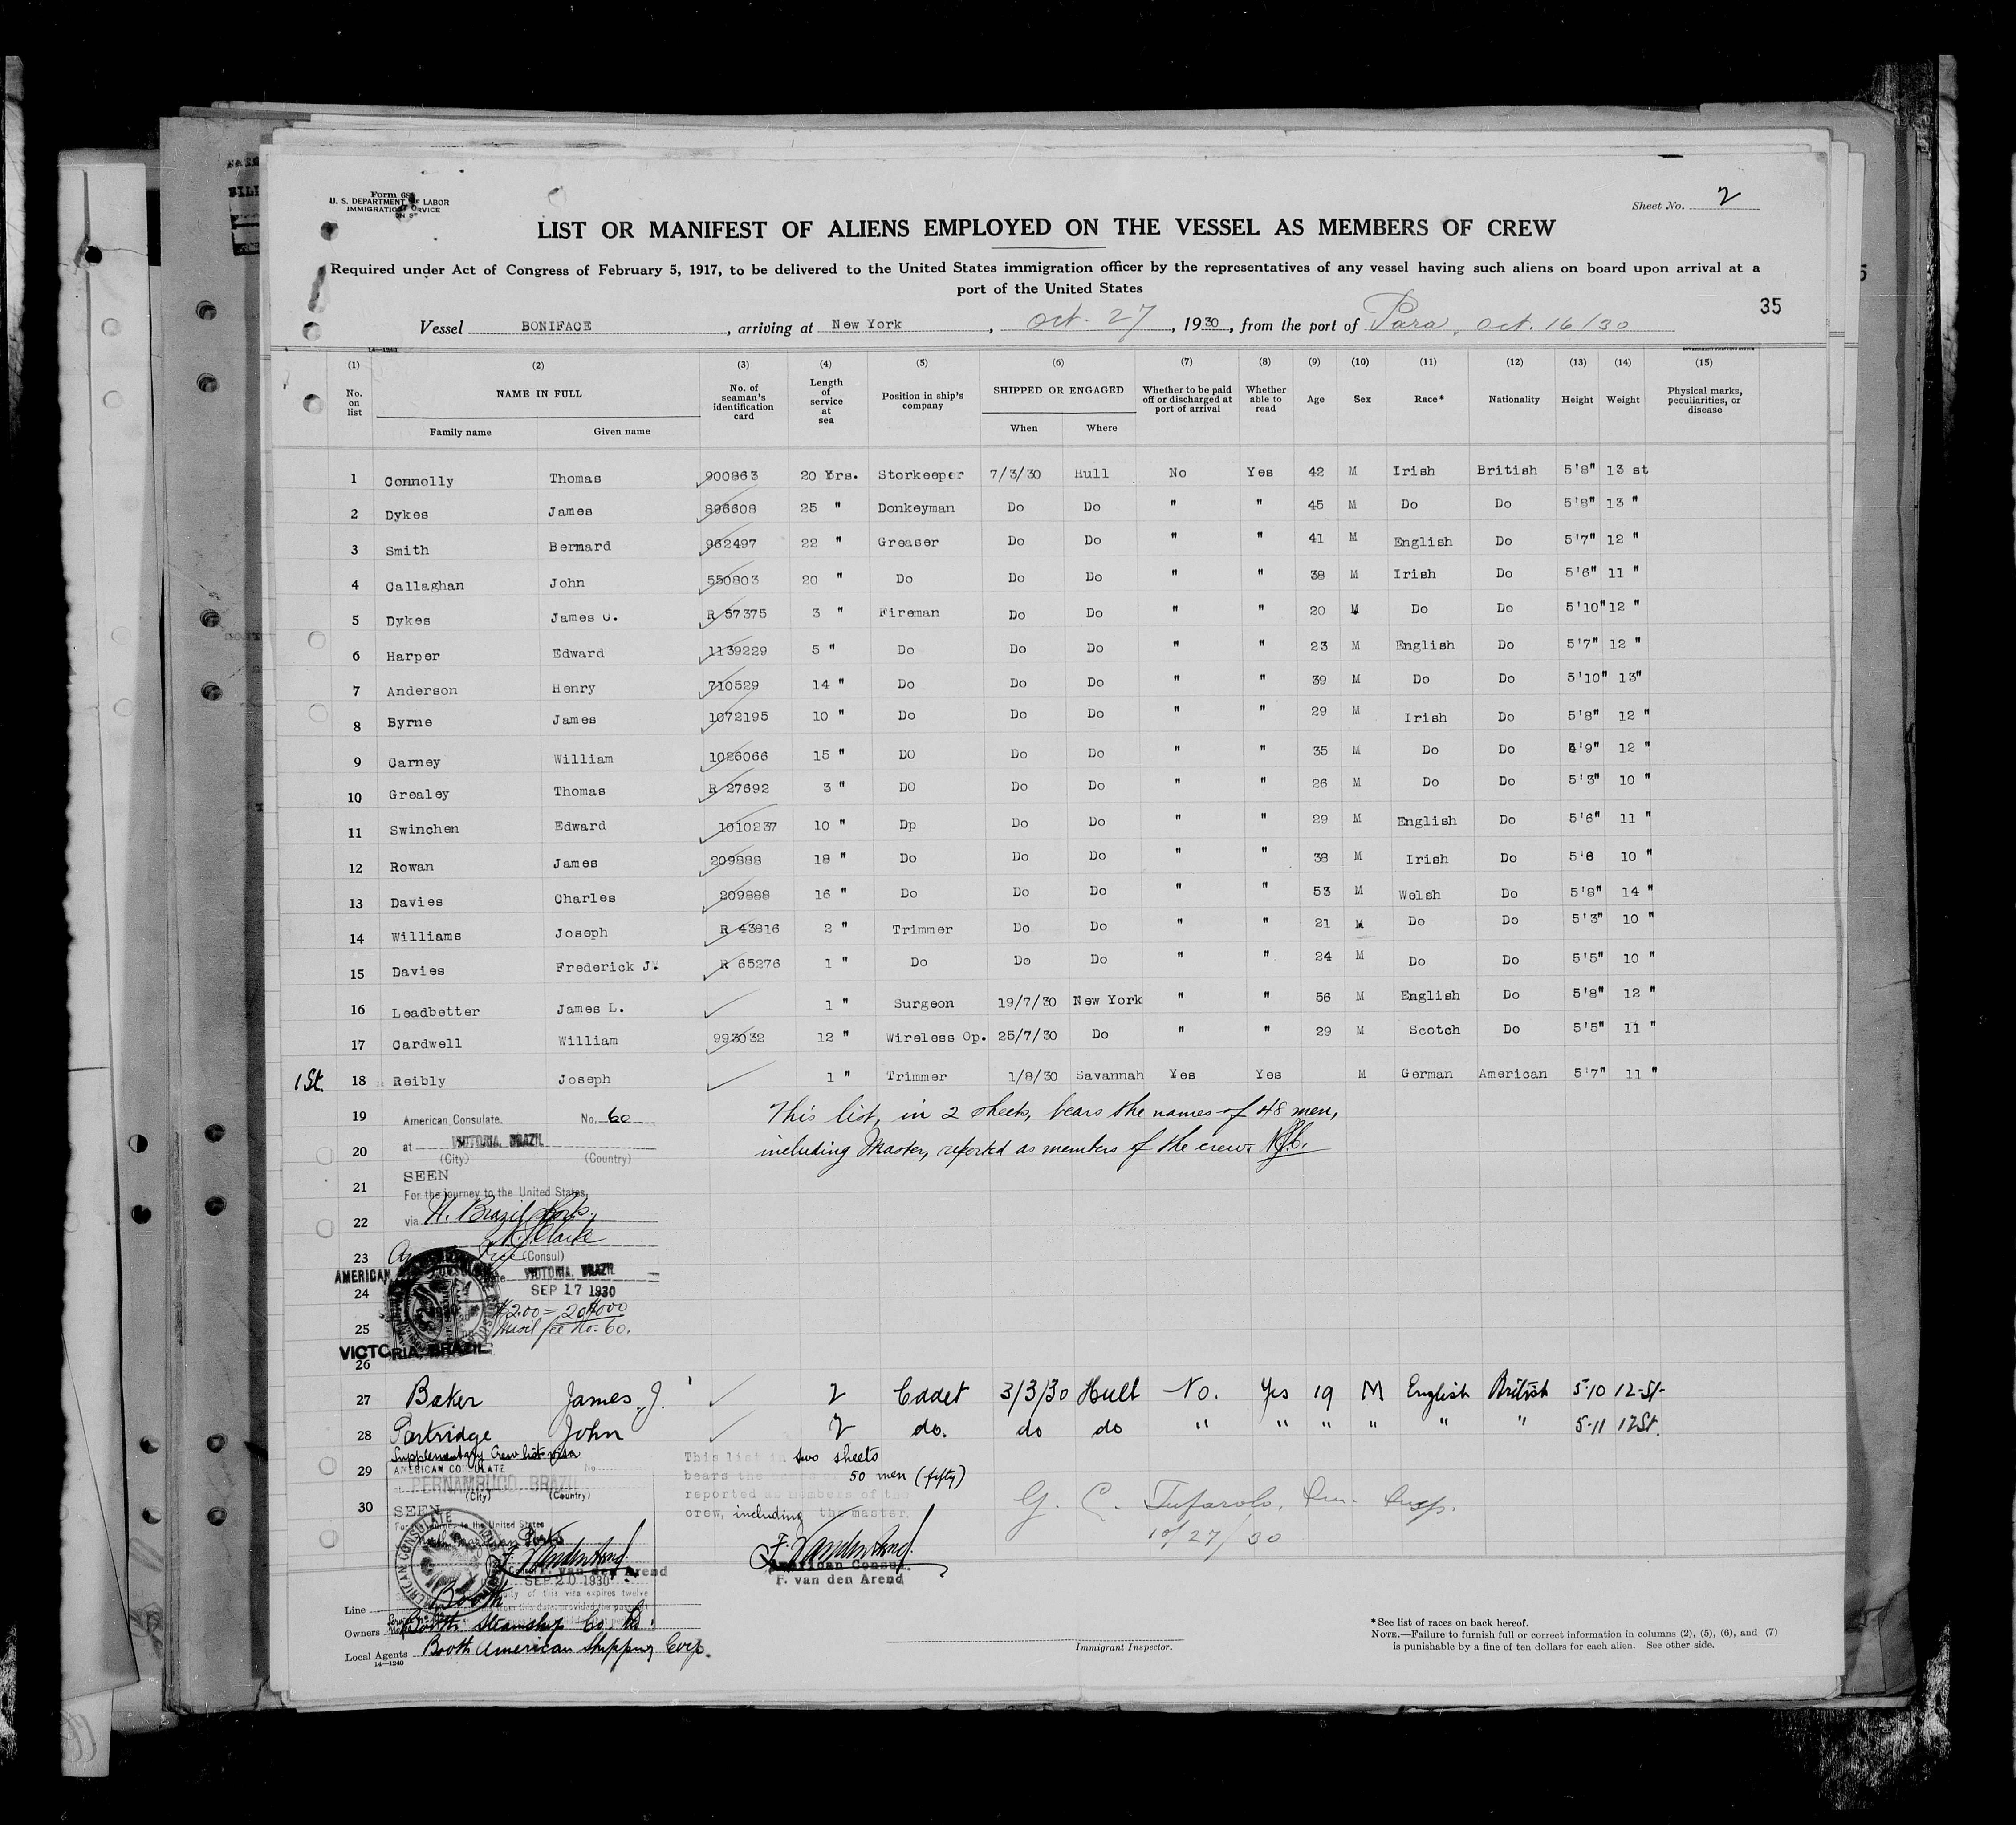 Form 68
U. S. DEPARTMENT OF LABOR
IMMIGRATION SERVICE
Sheet No. 2
LIST OR MANIFEST OF ALIENS EMPLOYED ON THE VESSEL AS MEMBERS OF CREW
Required under Act of Congress of February 5, 1917, to be delivered to the United States immigration officer by the representatives of any vessel having such aliens on board upon arrival at a
port of the United States
35
Vessel BONIFACE, arriving at New York, Oct. 27, 1930, from the port of Para, Oct. 16/30
14-1240
(1) (2) (3) (4) (5) (6) (7) (8) (9) (10) (11) (12) (13) (14) (15)
No. on list NAME IN FULL Family name Given name No. of seaman's identification card Length of service at sea Position in ship's company SHIPPED OR ENGAGED When Where Whether to be paid off or discharged at port of arrival Whether able to read Age Sex Race* Nationality Height Weight Physical marks, peculiarities, or disease
1 Connolly Thomas 900863 20 Yrs. Storkeeper 7/3/30 Hull No Yes 42 M Irish British 5'8" 13 st
2 Dykes James 896608 25 " Donkeyman Do Do " " 45 M Do Do 5'8" 13 "
3 Smith Bernard 962497 22 " Greaser Do Do " " 41 M English Do 5'7" 12 "
4 Callaghan John 550803 20 " Do Do Do " " 38 M Irish Do 5'6" 11 "
5 Dykes James O. R 57375 3 " Fireman Do Do " " 20 M Do Do 5'10" 12 "
6 Harper Edward 1139229 5 " Do Do Do " " 23 M English Do 5'7" 12 "
7 Anderson Henry 710529 14 " Do Do Do " " 39 M Do Do 5'10" 13"
8 Byrne James 1072195 10 " Do Do Do " " 29 M Irish Do 5'8" 12 "
9 Carney William 1026066 15 " DO Do Do " " 35 M Do Do 5'9" 12 "
10 Grealey Thomas R 27692 3 " DO Do Do " " 26 M Do Do 5'3" 10 "
11 Swinchen Edward 1010237 10 " Dp Do Do " " 29 M English Do 5'6" 11 "
12 Rowan James 209888 18 " Do Do Do " " 38 M Irish Do 5'6 10 "
13 Davies Charles 209888 16 " Do Do Do " " 53 M Welsh Do 5'8" 14 "
14 Williams Joseph R 43816 2 " Trimmer Do Do " " 21 M Do Do 5'3" 10 "
15 Davies Frederick J. R 65276 1 " Do Do Do " " 24 M Do Do 5'5" 10 "
16 Leadbetter James L. 1 " Surgeon 19/7/30 New York " " 56 M English Do 5'8" 12 "
17 Cardwell William 993032 12 " Wireless Op. 25/7/30 Do " " 29 M Scotch Do 5'5" 11 "
1 St. 18 Reibly Joseph 1 " Trimmer 1/8/30 Savannah Yes Yes M German American 5'7" 11 "
19
20
21
22
23
24
25
26
This list, in 2 sheets, bears the names of 48 men,
including Master, reported as members of the crew.
American Consulate. No. 60
at VICTORIA, BRAZIL
(City) (Country)
SEEN
For the journey to the United States,
via N. Brazil Ports.
Clarke
Vice (Consul)
VICTORIA, BRAZIL
SEP 17 1930
AMERICAN
$2.00 =
fee No. 60.
VICTORIA, BRAZIL
27 Baker James J. 2 Cadet 3/3/30 Hull No. Yes 19 M English British 5-10 12-St-
28 Partridge John 2 do. do do " " " " " " 5-11 12 St.
29
30
Supplementary Crew list visa
AMERICAN CONSULATE No.
at PERNAMBUCO, BRAZIL
(City) (Country)
SEEN
For the journey to the United States
F. van den Arend
SEP 20 1930
This list in two sheets
bears the names of 50 men (fifty)
reported as members of the
crew, including the master.
F. van den Arend
American Consul.
F. van den Arend
G. C. Tufarolo, Im. Insp.
10/27/30
Line Booth
Owners Booth Steamship Co. Ld.
Local Agents Booth American Shipping Corp.
14-1240
Immigrant Inspector.
*See list of races on back hereof.
NOTE.—Failure to furnish full or correct information in columns (2), (5), (6), and (7)
is punishable by a fine of ten dollars for each alien. See other side.